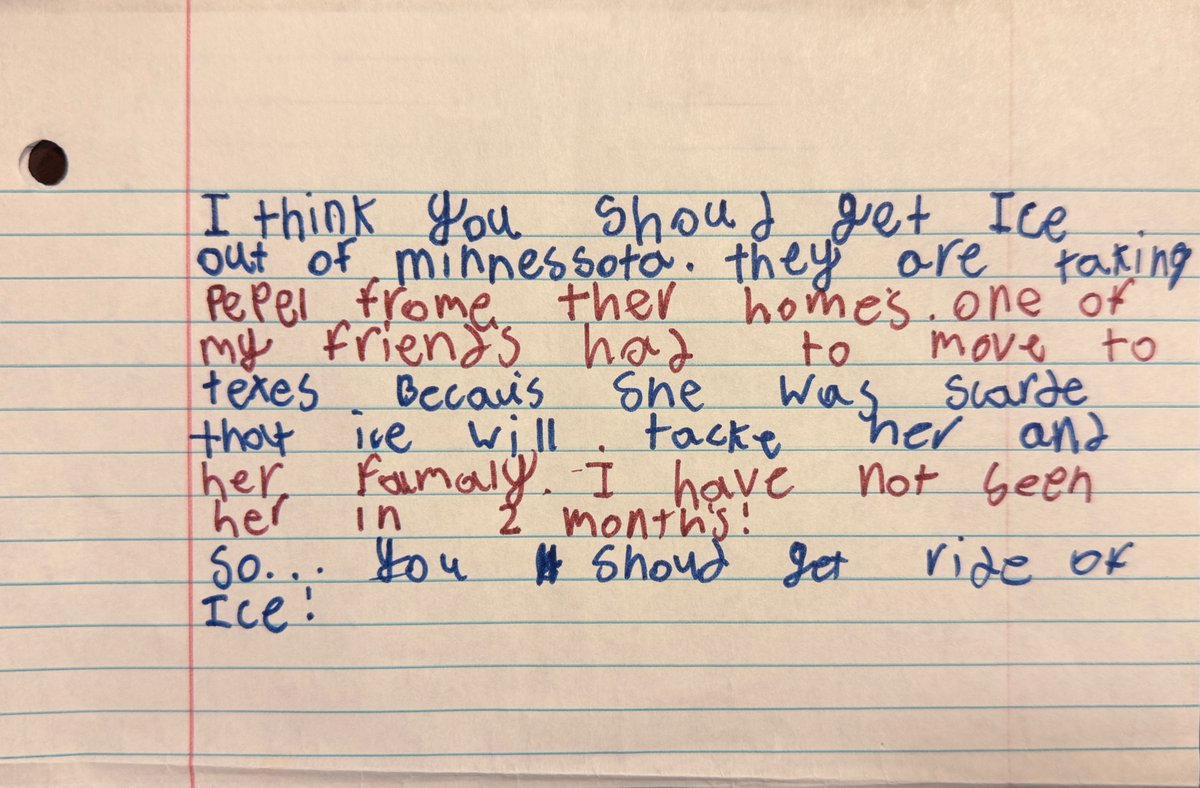 I think you shoud get Ice
out of minnessota. they are taking
PePel frome ther home's. one of
my friends had to move to
texes Becauis She was scarde
that ice will tacke her and
her famaly. I have not seen
her in 2 months!
So... you shoud get ride of
Ice!